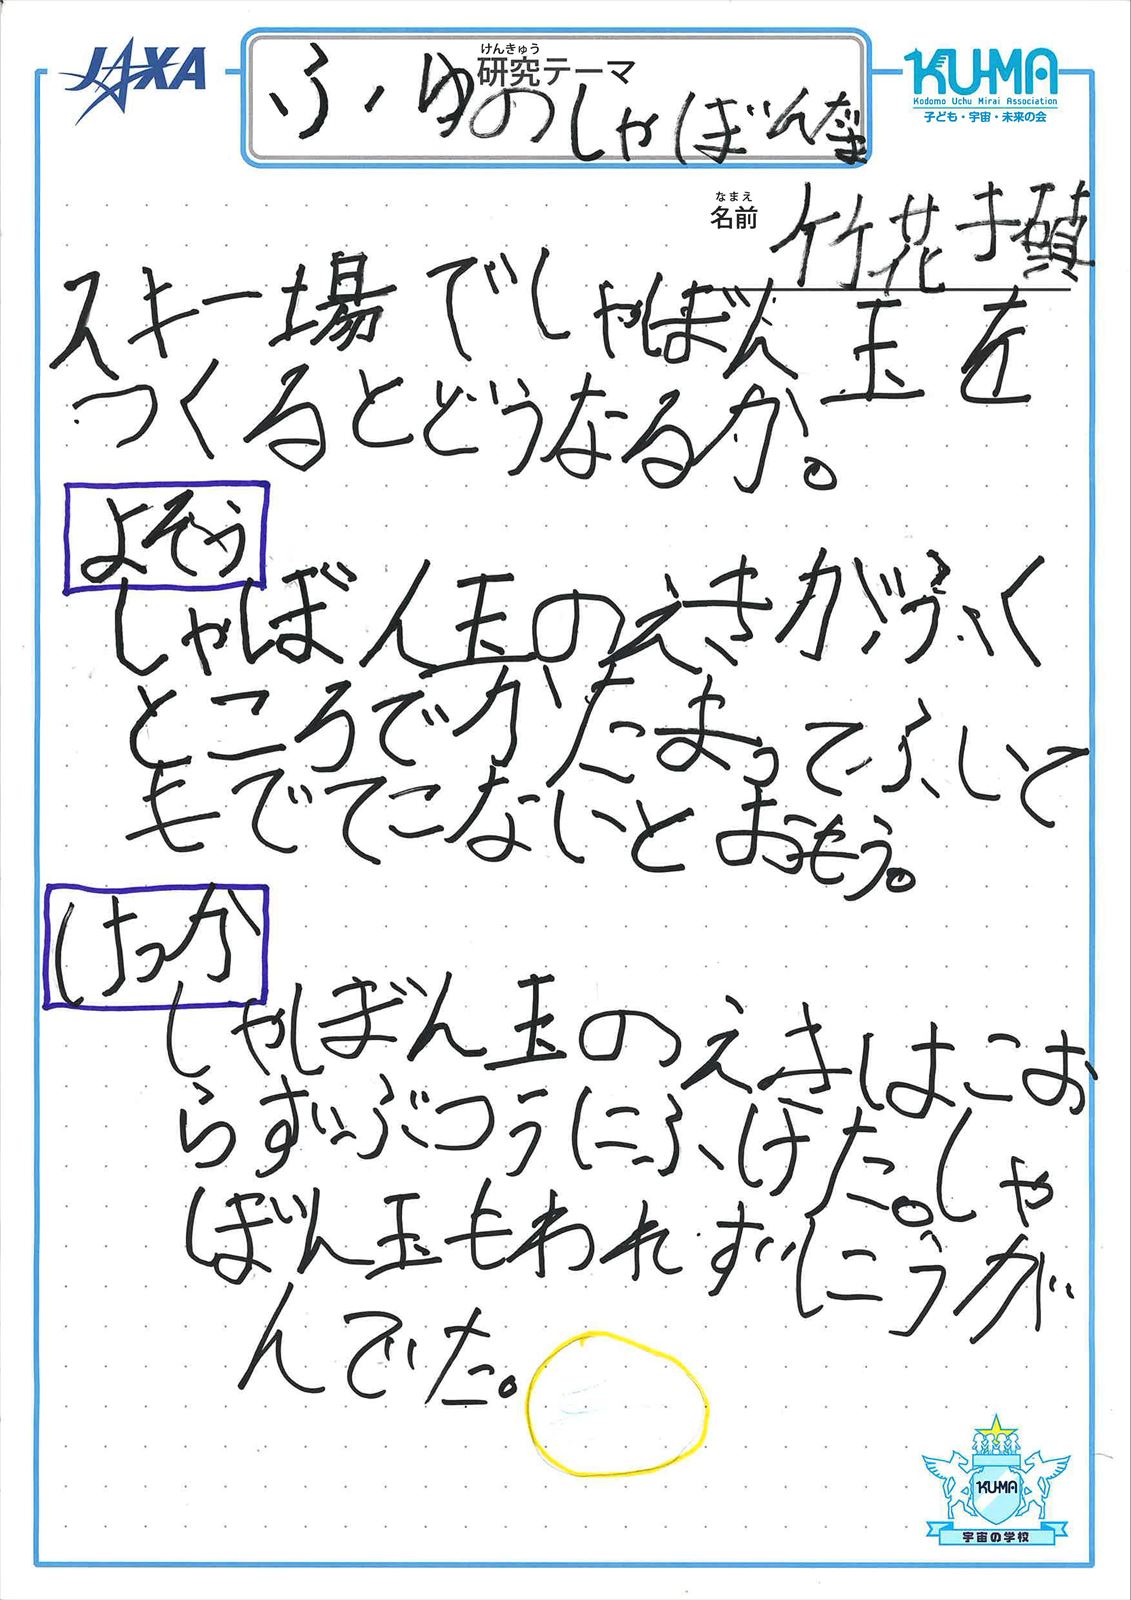 JAXA
けんきゅう
研究テーマ
ふゆのしゃぼんだま
KU-MA
Kodomo Uchu Mirai Association
子ども・宇宙・未来の会
なまえ
名前
竹花
スキー場でしゃぼん玉を
つくるとどうなるか。
よそう
しゃぼん玉のえきがふく
ところでかたまってふいて
もでてこないとおもう。
けっか
しゃぼん玉のえきはこお
らずふつうにふけた。しゃ
ぼん玉もわれずにうか
んでた。
KU-MA
宇宙の学校